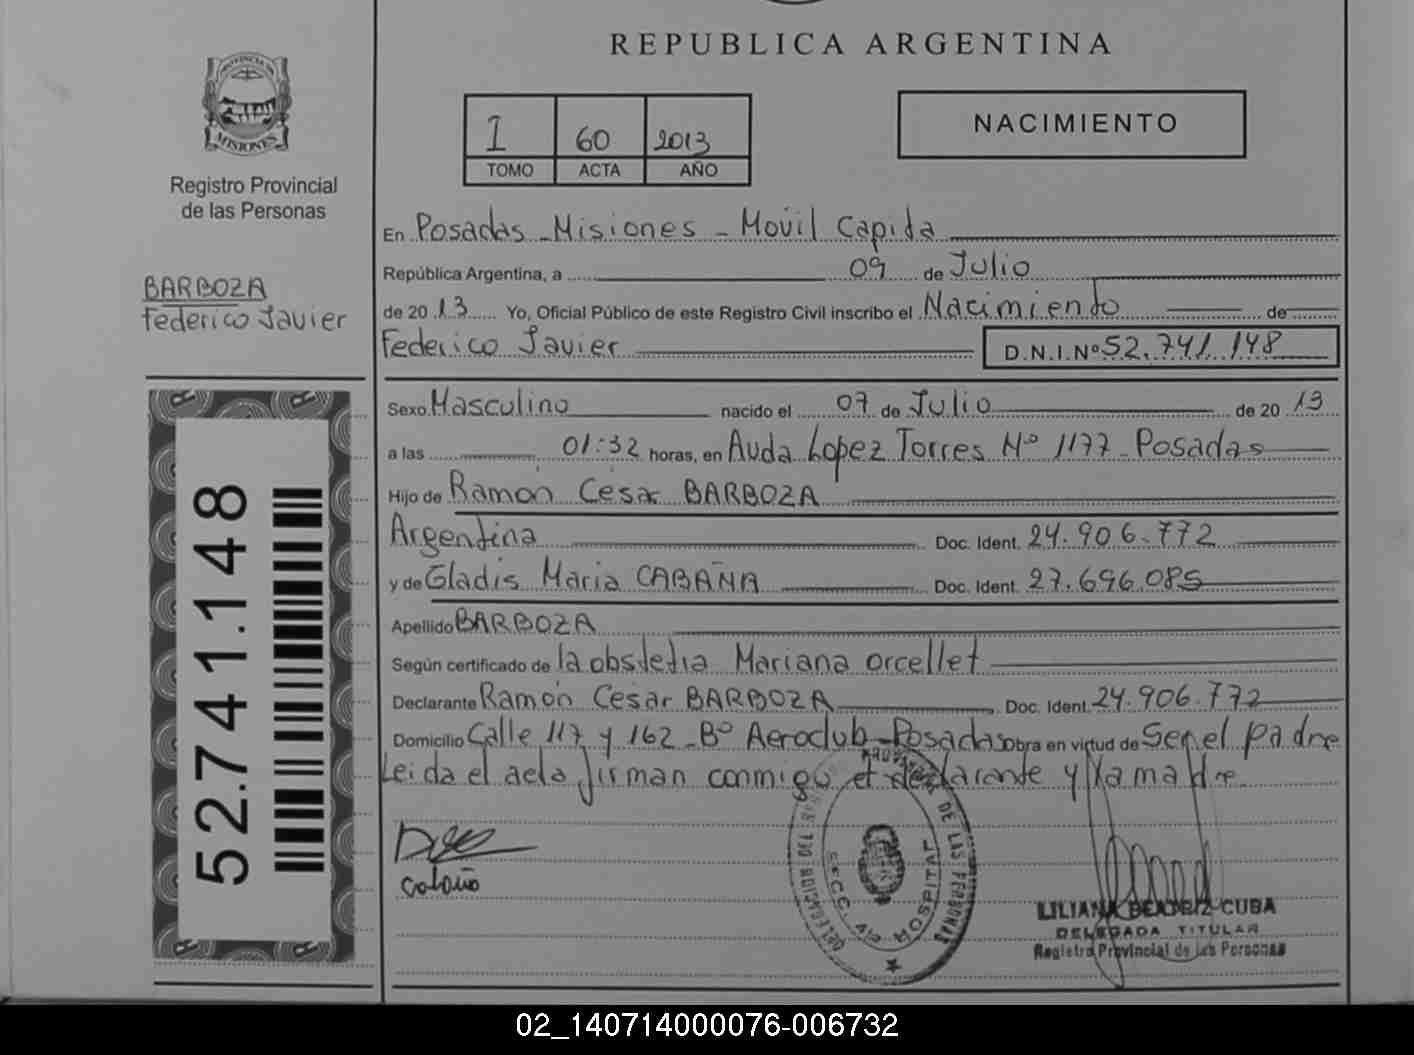 REPUBLICA ARGENTINA
PROVINCIA DE
MISIONES
Registro Provincial
de las Personas
BARBOZA
Federico Javier
52.741.148
1 60 2013
TOMO ACTA AÑO
NACIMIENTO
En Posadas - Misiones - Movil Capida
República Argentina, a 09 de Julio
de 2013 Yo, Oficial Público de este Registro Civil inscribo el Nacimiento de
Federico Javier D.N.I.Nº 52.741.148
Sexo Masculino nacido el 07 de Julio de 2013
a las 01:32 horas, en Avda Lopez Torres Nº 1177 - Posadas
Hijo de Ramón César BARBOZA
Argentina Doc. Ident. 24.906.772
y de Gladis Maria CABAÑA Doc. Ident. 27.696.085
Apellido BARBOZA
Según certificado de la obstetia Mariana Orcellet
Declarante Ramón Cesar BARBOZA Doc. Ident. 24.906.772
Domicilio Calle 117 y 162 - Bº Aeroclub - Posadas obra en virtud de Ser el padre
Leida el acta firman conmigo el declarante y la madre.
DELEGACION DEL PROVINCIAL DE LAS PERSONAS
SECC. HOSPITAL
LILIANA BEATRIZ CUBA
DELEGADA TITULAR
Registro Provincial de las Personas
02_140714000076-006732